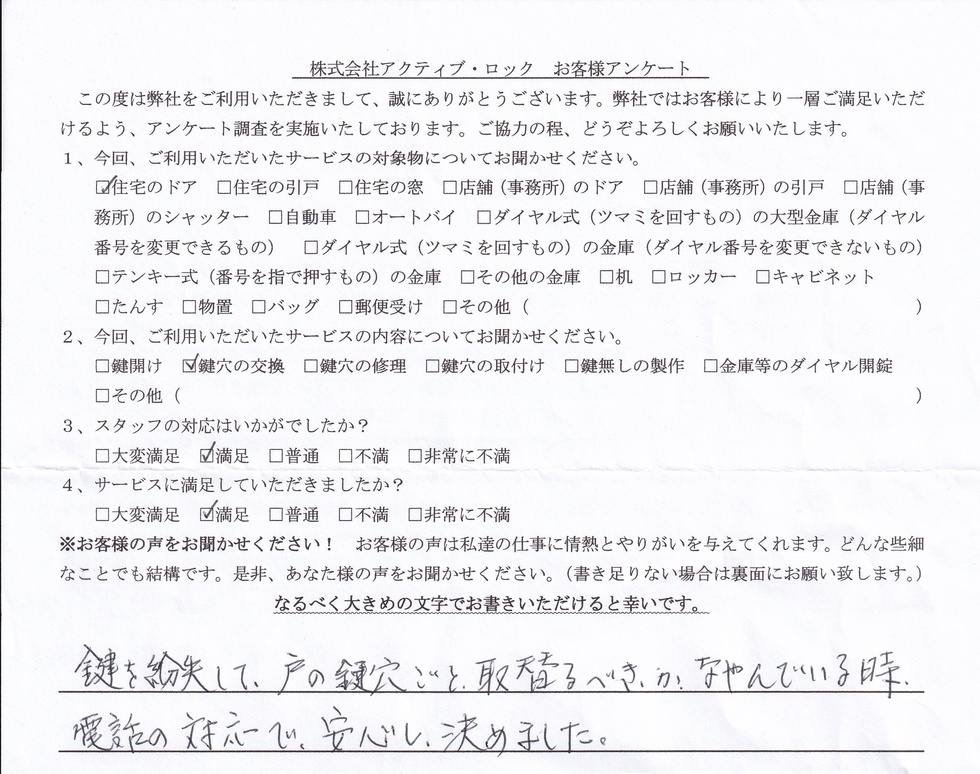 株式会社アクティブ・ロック　お客様アンケート
この度は弊社をご利用いただきまして、誠にありがとうございます。弊社ではお客様により一層ご満足いただ
けるよう、アンケート調査を実施いたしております。ご協力の程、どうぞよろしくお願いいたします。
１、今回、ご利用いただいたサービスの対象物についてお聞かせください。
☑住宅のドア　□住宅の引戸　□住宅の窓　□店舗（事務所）のドア　□店舗（事務所）の引戸　□店舗（事
務所）のシャッター　□自動車　□オートバイ　□ダイヤル式（ツマミを回すもの）の大型金庫（ダイヤル
番号を変更できるもの）　□ダイヤル式（ツマミを回すもの）の金庫（ダイヤル番号を変更できないもの）
□テンキー式（番号を指で押すもの）の金庫　□その他の金庫　□机　□ロッカー　□キャビネット
□たんす　□物置　□バッグ　□郵便受け　□その他（　　　　　　　　　　）
２、今回、ご利用いただいたサービスの内容についてお聞かせください。
□鍵開け　☑鍵穴の交換　□鍵穴の修理　□鍵穴の取付け　□鍵無しの製作　□金庫等のダイヤル開錠
□その他（　　　　　　　　　　）
３、スタッフの対応はいかがでしたか？
□大変満足　☑満足　□普通　□不満　□非常に不満
４、サービスに満足していただきましたか？
□大変満足　☑満足　□普通　□不満　□非常に不満
※お客様の声をお聞かせください！　お客様の声は私達の仕事に情熱とやりがいを与えてくれます。どんな些細
なことでも結構です。是非、あなた様の声をお聞かせください。（書き足りない場合は裏面にお願い致します。）
なるべく大きめの文字でお書きいただけると幸いです。
鍵を紛失して、戸の鍵穴ごと、取替るべきか、なやんでいる時、
電話の対応で、安心し、決めました。